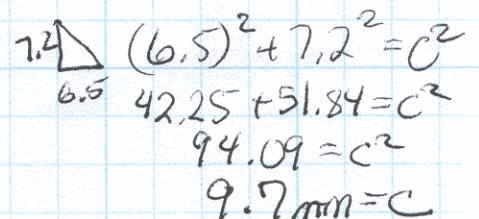 7.2 (6.5)² + 7.2² = c²
6.5
42.25 + 51.84 = c²
94.09 = c²
9.7 mm = c